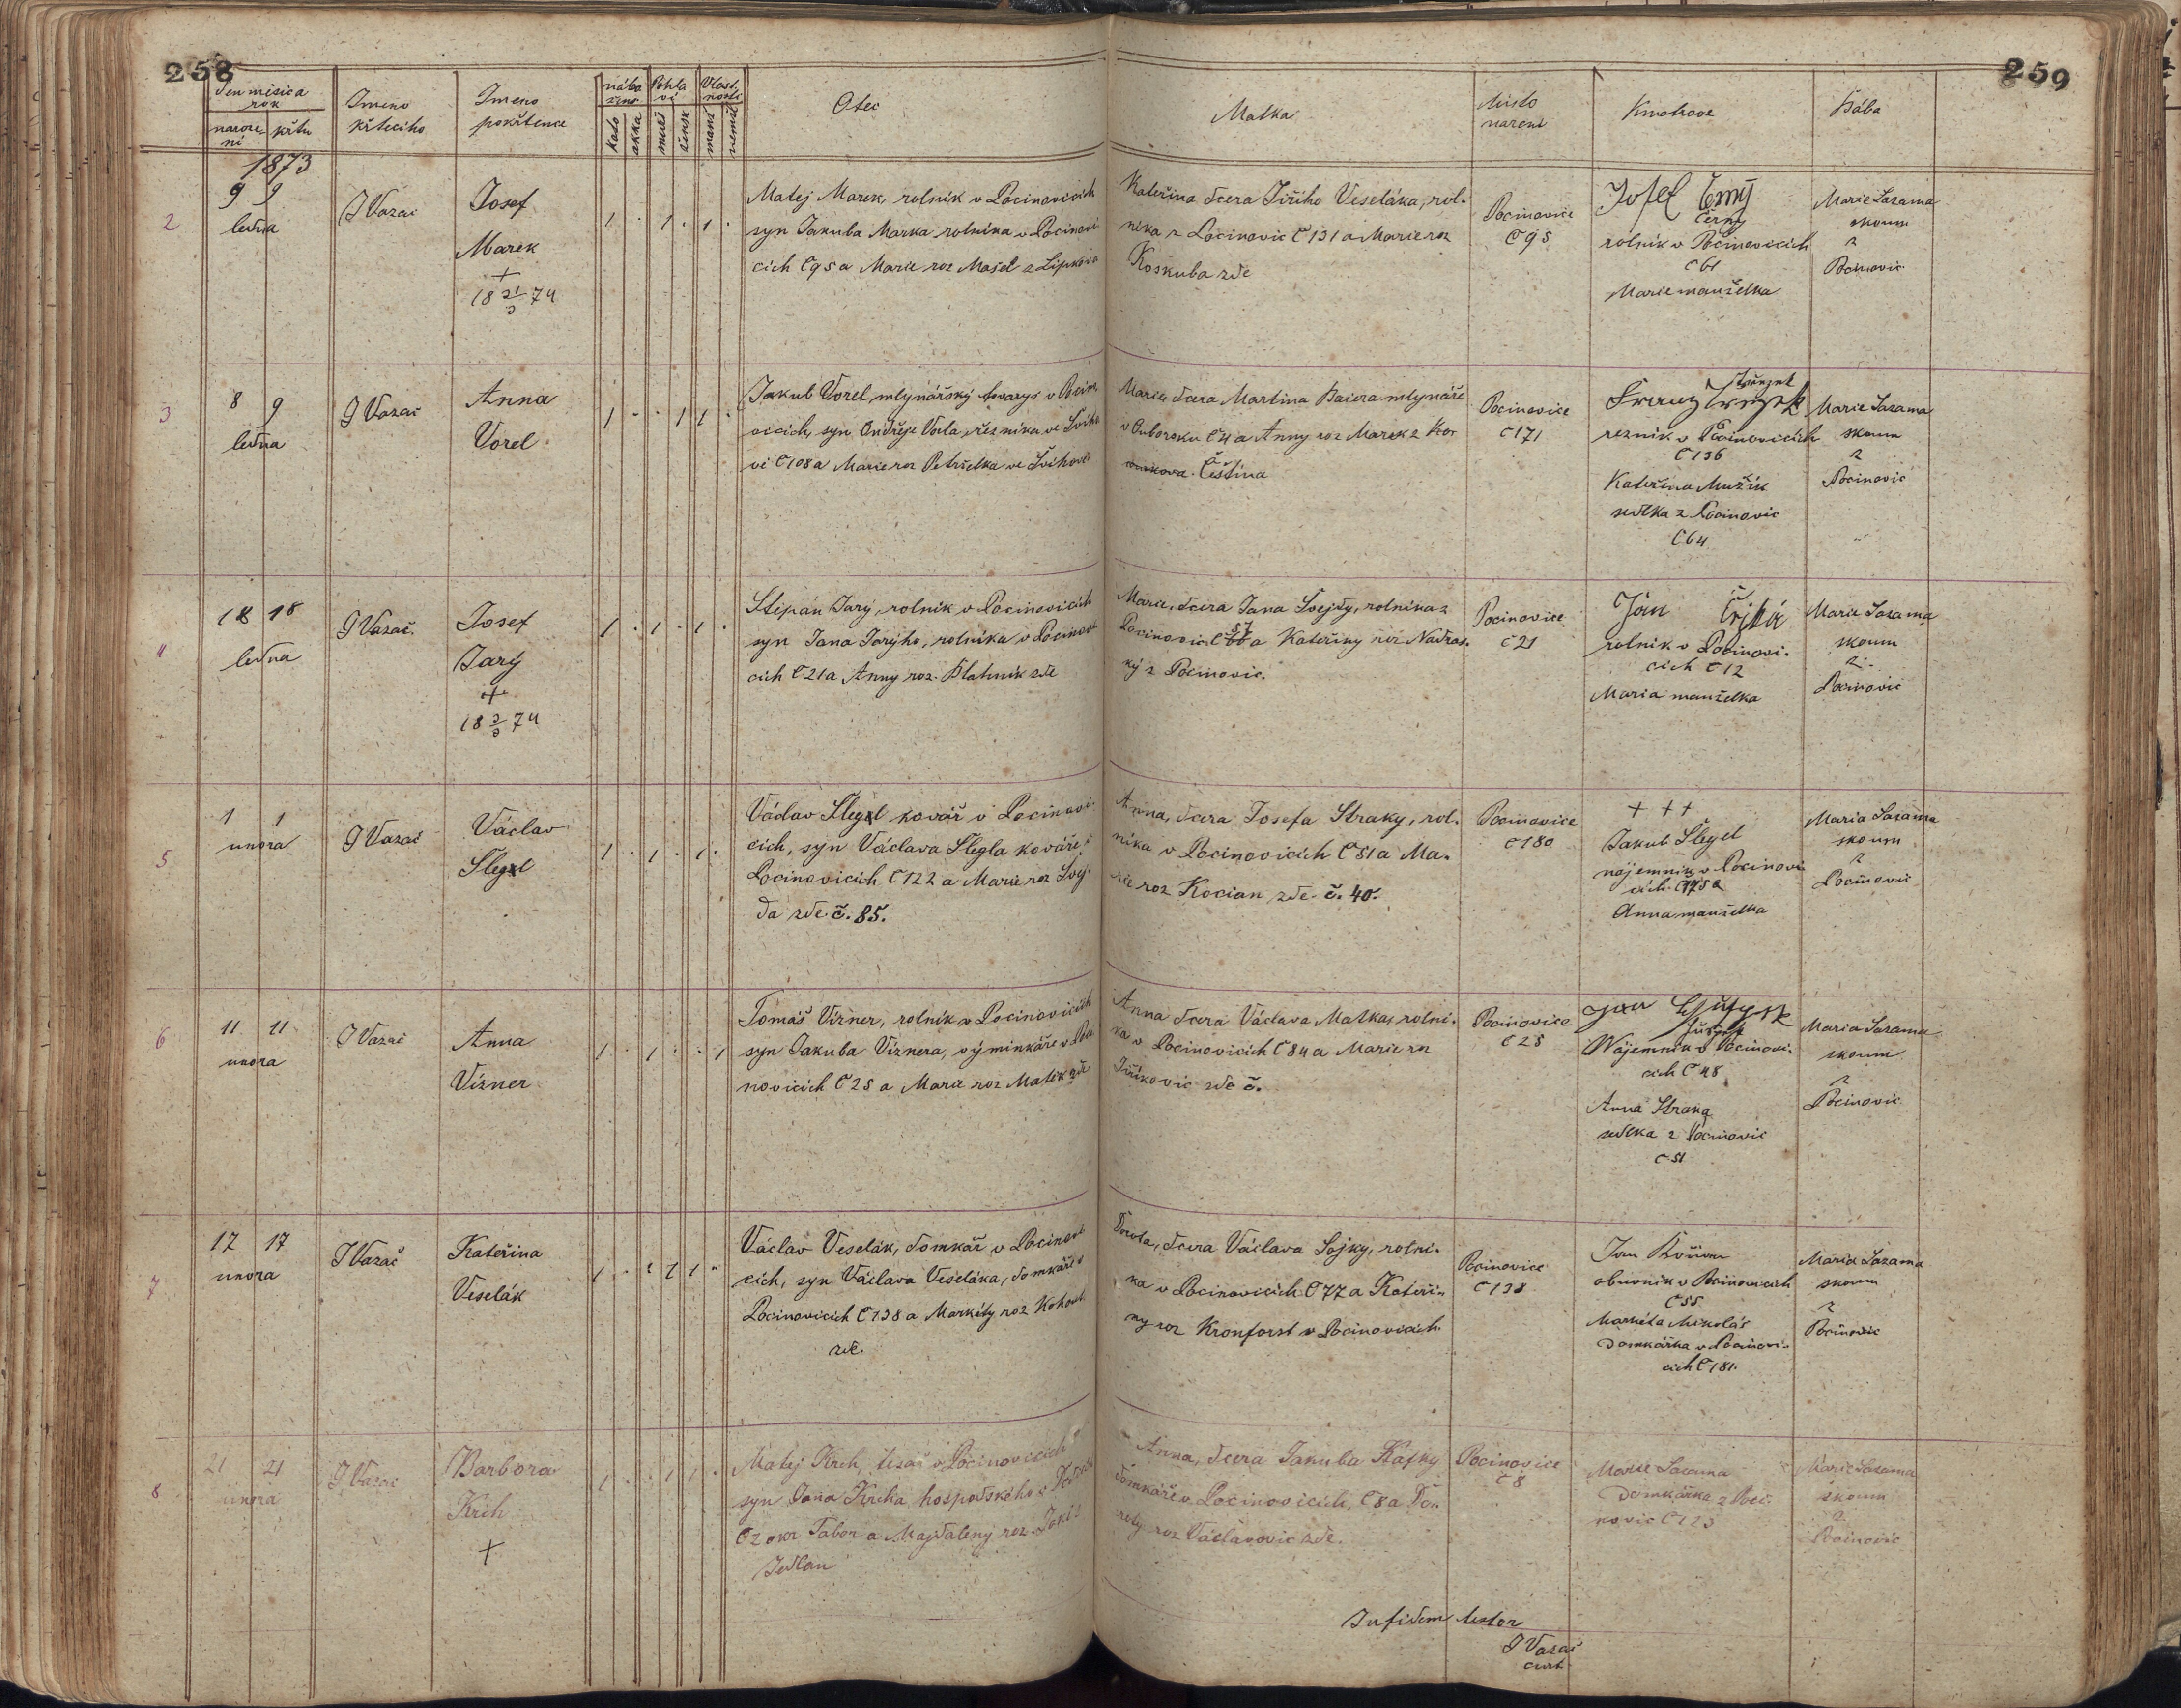 258
259
Den měsíca
rok
narore-
ní
křtu
Jmeno
křtecího
Jmeno
pokřtence
nábo
žens
kato
akka
Pohla
ví
muž
žensk
Vlast
nosti
manž
neman
Otec
Matka
Místo
narení
Kmotrove
Bába
1873
2
9 9
ledna
J Vazač
Josef
Marek
+
18 21/3 74
1 . 1 . 1 .
Matej Marek, rolník v Pocinovicích
syn Jakuba Marka rolníka v Pocinovi
cích Č 95 a Marie roz Mašel z Lipkova
Kateřina dcera Jiřího Veseláka, rol-
níka z Pocinovic Č 131 a Marie roz
Koskuba zde
Pocinovice
Č 95
Josef Černý
Černy
rolník v Pocinovicích
Č 61
Marie manželka
Marie Sazama
skoum
z
Pocinovic
3
8 9
ledna
J Vazač
Anna
Vorel
1 . . 1 1 .
Jakub Vorel, mlynářský tovaryš v Pocin
ovicích, syn Ondřeje Vorla, řezníka ve Šviho
vě Č 108 a Marie roz Petrželka ve Švihově
Marie, dcera Martina Baiera mlynáře
v Ouborsku Č 4 a Anny roz Marek z
Čestina
Pocinovice
Č 171
Franz
řezník v Pocinovicích
Č 136
Kateřina Mužík
sedlka z Pocinovic
Č 64
Marie Sazama
skoum
z
Pocinovic
4
18 18
ledna
J Vazač.
Josef
Jarý
+
18 3/3 74
1 . 1 . 1 .
Štěpán Jarý, rolník v Pocinovicích
syn Jana Jarýho, rolníka v Pocinovi
cích Č 21 a Anny roz. Blahník zde
Marie, dcera Jana Švejdy, rolníka z
Pocinovic Č 57 a Kateřiny roz Nadras-
ký z Pocinovic.
Pocinovice
Č 21
Ján
rolník v Pocinovi-
cích Č 12
Maria manželka
Marie Sazama
skoum
z
Pocinovic
5
1 1
unora
J Vazač
Václav
Šlegl
1 . 1 . 1 .
Václav Šlegl kovář v Pocinovi-
cích, syn Václava Šlegla kováře v
Pocinovicích Č 122 a Marie roz Švej-
da zde č. 85.
Anna, dcera Josefa Straky, rol-
níka v Pocinovicích Č 51 a Ma-
rie roz Kocian zde. č. 40.
Pocinovice
Č 180
+ + +
Jakub Šlegel
nájemník v Pocinovi
cích Č 175 a
Anna manželka
Maria Sazama
skoum
z
Pocinovic
6
11 11
unora
J Vazač
Anna
Vízner
1 . 1 . . 1
Tomáš Vízner, rolník v Pocinovicích
syn Jakuba Víznera, výminkáře v Poci
novicích Č 25 a Marie roz Matek zde
Anna dcera Václava Matkas rolní-
ka v Pocinovicích Č 84 a Marie roz
Jiříkovic zde č.
Pocinovice
Č 25
Jan
Nájemník v Pocinovi-
cích Č 48
Anna Straka
sedlka z Pocinovic
Č 51
Maria Sazama
skoum
z
Pocinovic
7
17 17
unora
J Vazač
Kateřina
Veselák
1 . . 1 1 .
Václav Veselák, domkář v Pocinovi
cích, syn Václava Veseláka, domkáře v
Pocinovicích Č 138 a Markéty roz Kohout
zde.
Dorota, dcera Václava Sojky, rolní-
ka v Pocinovicích Č 77 a Kateři-
ny roz Kronforst v Pocinovicích.
Pocinovice
Č 138
Jan
obuvník v Pocinovicích
Č 55
Markéta Mikoláš
domkářka v Pocinovi-
cích Č 181.
Maria Sazama
skoum
z
Pocinovic
8
21 21
unora
J Vazač
Barbora
Krch
+
1 . . 1 1 .
Matej Krch, tesař v Pocinovicích
syn Jana Krcha, hospodského z
Č 2 okr Tabor a Magdaleny roz.
Jedlan
Anna, dcera Jakuba Kafky
domkáře v Pocinovicích, Č 8 a Do-
roty roz Václavovic zde.
Pocinovice
Č 8
Marie Sazama
domkářka z Poci-
novic Č 123
Marie Sazama
skoum
z
Pocinovic
In fidem testor
J Vazač
curat.